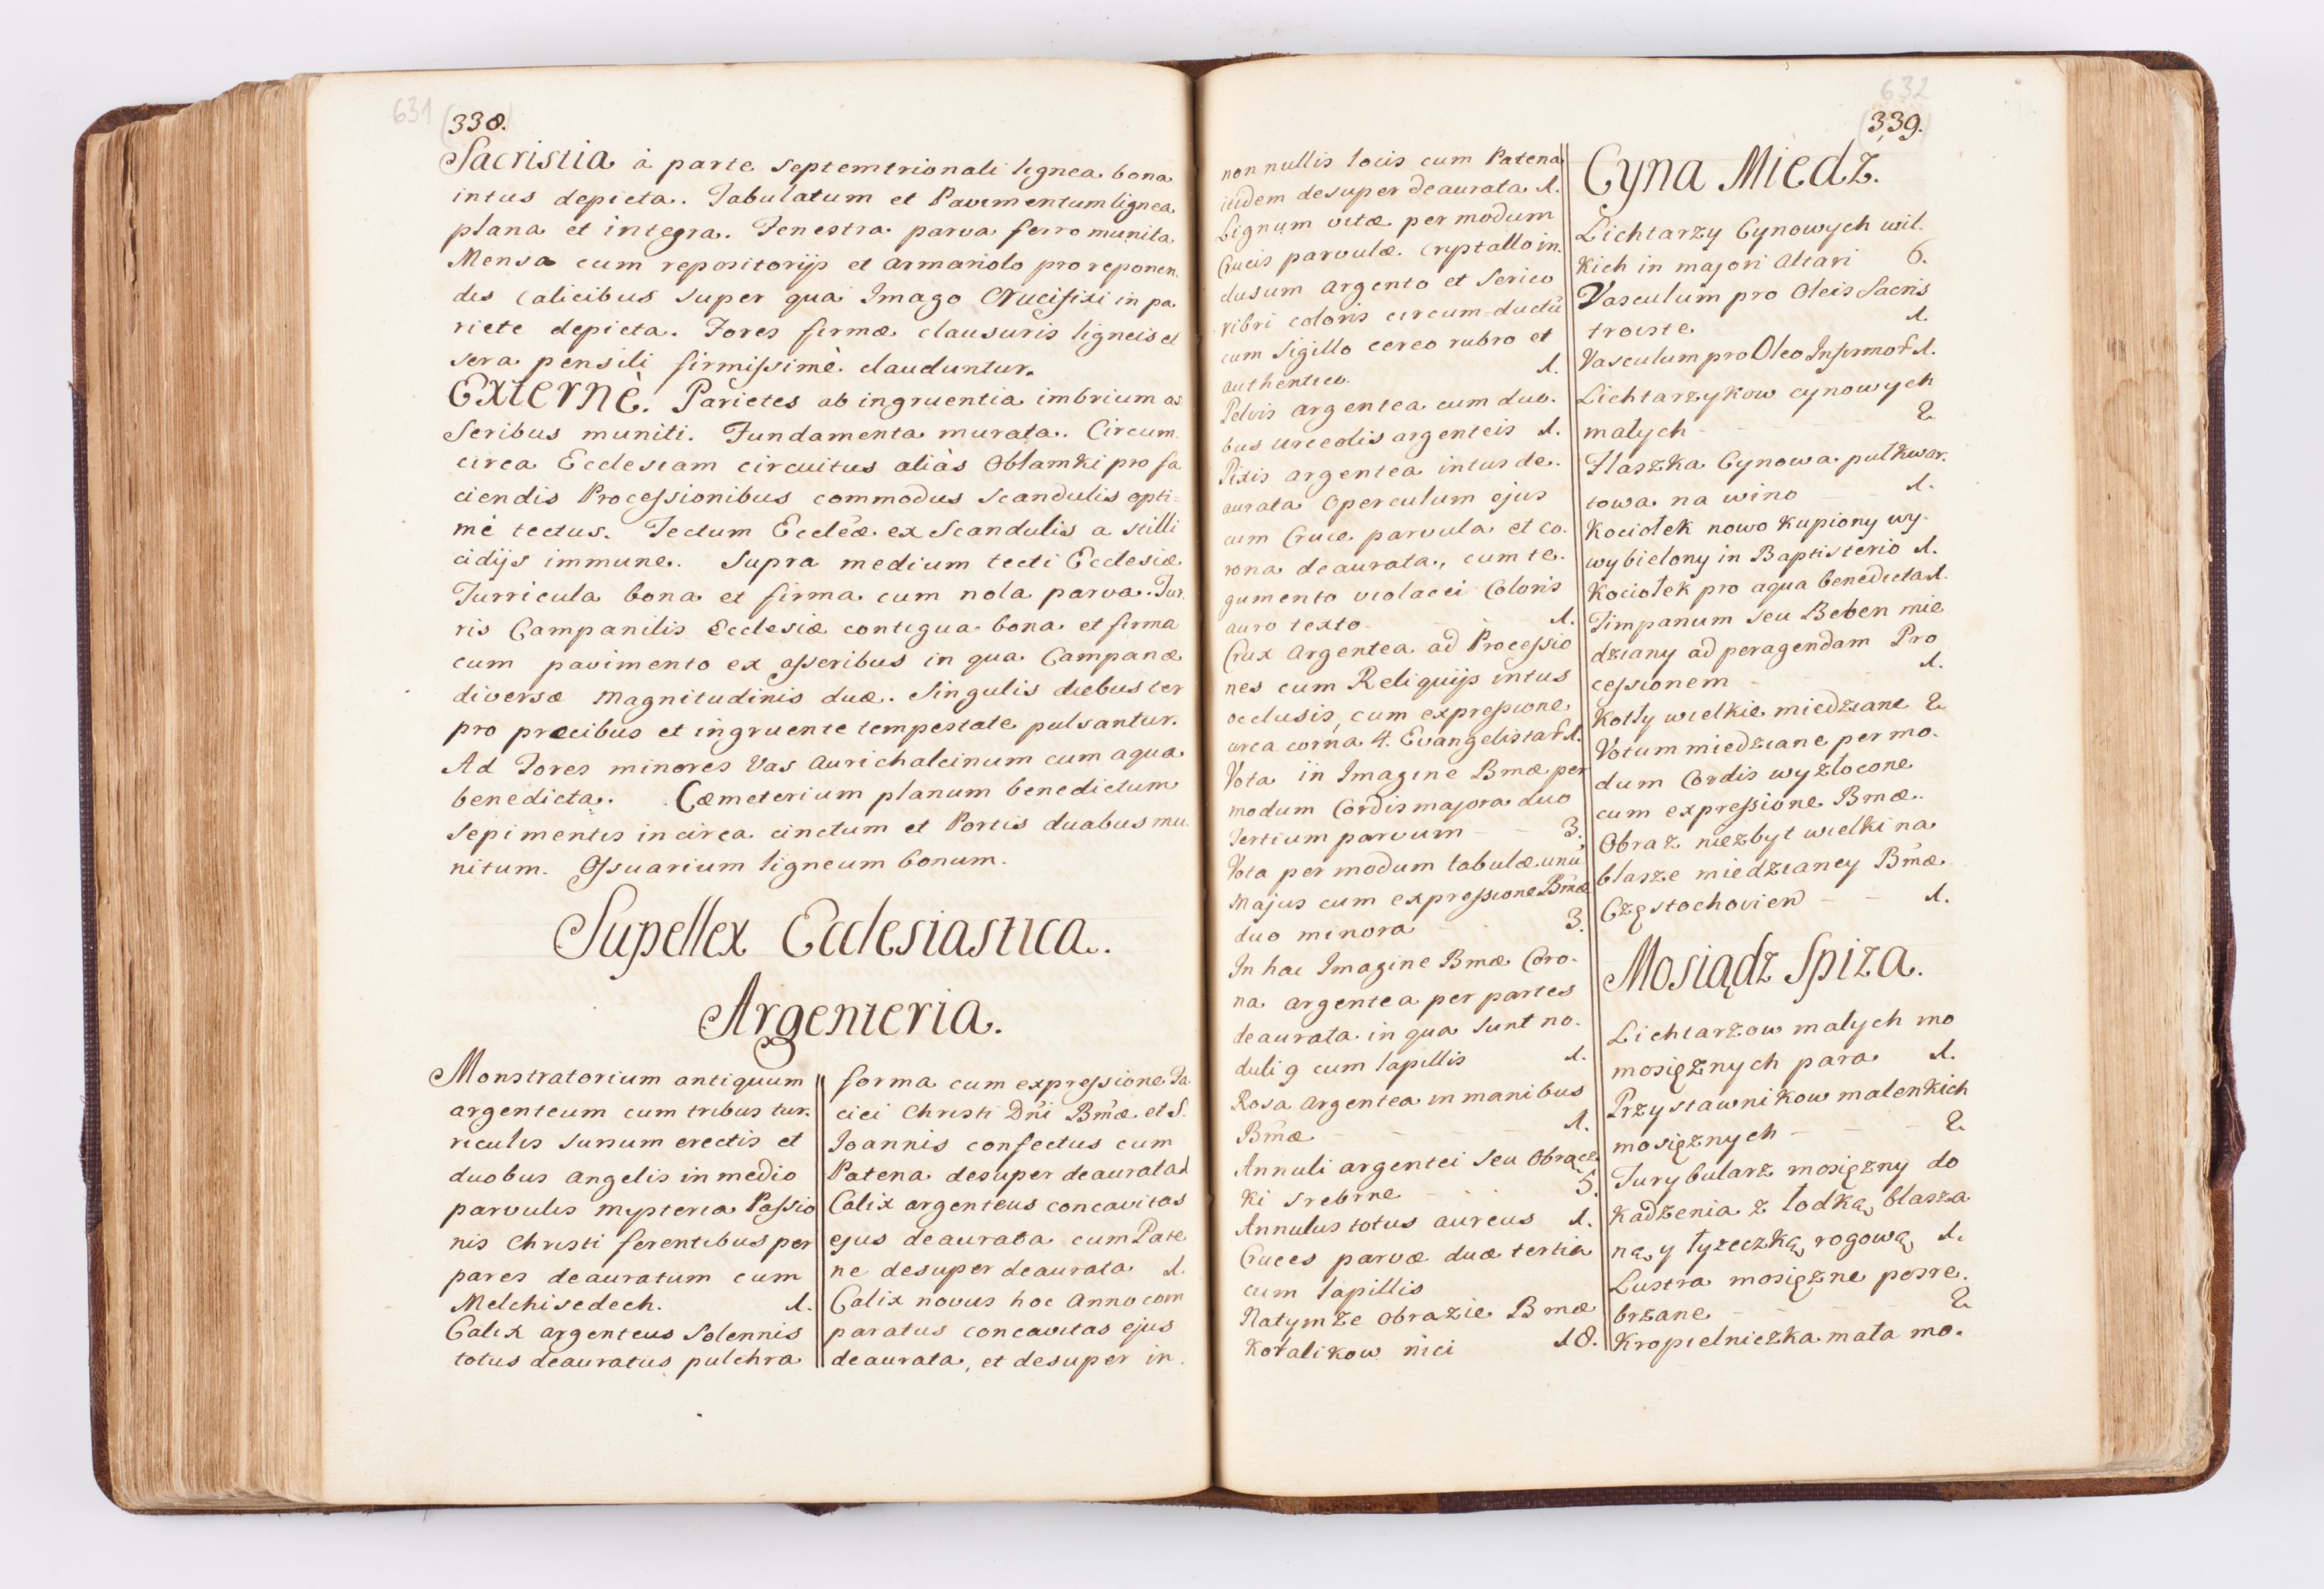 631
338.
Sacristia à parte septemtrionali lignea bona
intus depicta. Tabulatum et Pavimentum lignea
plana et integra. Fenestra parva ferro munita
Mensa cum repositorijs et armariolo pro reponen.
dis calicibus super qua Imago Crucifixi in pa
riete depicta. Fores firmæ clausuris ligneis et
sera pensili firmissimè clauduntur.
Externè. Parietes ab ingruentia imbrium as
seribus muniti. Fundamenta murata. Circum
circa Ecclesiam circuitus aliàs Obłamki pro fa
ciendis Processionibus commodus scandulis opti=
mè tectus. Tectum Eccleæ ex Scandulis a stilli
cidijs immune. Supra medium tecti Ecclesiæ
Turricula bona et firma cum nola parva. Tur.
ris Campanilis Ecclesiæ contigua bona et firma
cum pavimento ex asseribus in qua Campanæ
diversæ magnitudinis duæ. Singulis diebus ter
pro precibus et ingruente tempestate pulsantur.
Ad Fores minores Vas aurichalcinum cum aqua
benedicta. Cæmeterium planum benedictum
sepimentis in circa cinctum et Portis duabus mu.
nitum. Ossuarium ligneum bonum.
Supellex Ecclesiastica.
Argenteria.
Monstratorium antiquum
argenteum cum tribus tur.
riculis sursum erectis et
duobus Angelis in medio
parvulis mysteria Passio
nis Christi ferentibus per
pares deauratum cum
Melchisedech. 1.
Calix argenteus solennis
totus deauratus pulchra
forma cum expressione Fa.
ciei Christi Dńi Bmæ et S.
Joannis confectus cum
Patena desuper deaurata 1
Calix argenteus concavitas
ejus deaurata cum Pate
ne desuper deaurata 1.
Calix novus hoc Anno com
paratus concavitas ejus
deaurata, et desuper in.
632
339.
non nullis locis cum Patena
itidem desuper deaurata 1.
Lignum vitæ per modum
Crucis parvulæ cryptallo in.
clusum argento et serico
ribri coloris circum=ductū
cum Sigillo cereo rubro et
authentico. 1.
Pelvis argentea cum duo.
bus urceolis argenteis 1.
Pixis argentea intus de.
aurata Operculum ejus
cum Cruce parvula et co.
rona deaurata, cum te.
gumento violacei Coloris
auro texto 1.
Crux Argentea ad Processio
nes cum Reliquijs intus
occlusis, cum expressione
circa corna 4. Evangelistar 1.
Vota in Imagine Bmæ per
modum Cordis majora duo
Tertium parvum - - 3.
Vota per modum tabulæ unū
majus cum expressione Bmæ
duo minora 3.
In hac Imagine Bmæ Coro.
na argentea per partes
deaurata in qua sunt no.
duli 9 cum lapillis 1.
Rosa argentea in manibus
Bmæ - - - 1.
Annuli argentei seu Obrącz
ki srebrne - - 5.
Annulus totus aureus 1.
Cruces parvæ duæ tertia
cum lapillis
Natymże obrazie Bmæ
Koralikow nici 18.
Cyna Miedź.
Lichtarzy Cynowych wil.
kich in majori Altari 6.
Vasculum pro Oleis Sacris
troiste 1.
Vasculum pro Oleo Infirmor 1.
Lichtarzykow cynowych
małych - - - 2
Flaszka Cynowa pułkwar.
towa na wino 1.
Kociołek nowo kupiony wy.
wybielony in Baptisterio 1.
Kociołek pro aqua benedicta 1.
Timpanum seu Beben mie
dziany ad peragendam Pro
cessionem - 1.
Kotły wielkie miedziane 2
Votum miedziane per mo.
dum Cordis wyzłocone
cum expressione Bmæ.
Obraz niezbyt wielki na
blasze miedzianey Bmæ
Częstochovien - - 1.
Mosiądz Spiza.
Lichtarzow małych mo
mosiężnych para 1.
Przystawnikow malenkich
mosiężnych - - - 2
Turybularz mosiężny do
Kadzenia z łodką, blasza
ną, y łyżeczką rogową 1.
Lustra mosiężne posre.
brzane - - - 2
Kropielniczka mała mo.